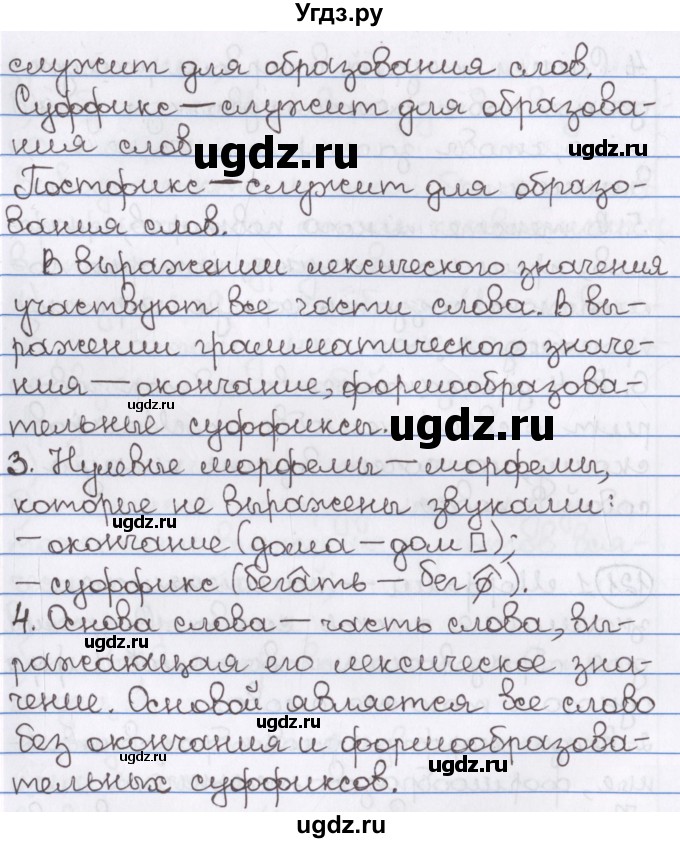 Угдз.ру
служит для образования слов.
Суффикс — служит для образова-
ния слов.
ugdz.ru
ugdz.ru
Постфикс — служит для образо-
вания слов.
В выражении лексического значения
участвуют все части слова. В вы-
ражении грамматического значе-
ния — окончание, формообразова-
ugdz.ru
тельные суффиксы.
ugdz.ru
3. Нулевые морфемы — морфемы,
которые не выражены звуками:
ugdz.ru
— окончание (дома — дом □);
— суффикс (бегать — бег ø).
ugdz.ru
4. Основа слова — часть слова, вы-
ugdz.ru
ражающая его лексическое зна-
чение. Основой является все слово
ugdz.ru
без окончания и формообразова-
ugdz.ru
тельных суффиксов.
ugdz.ru
ugdz.ru